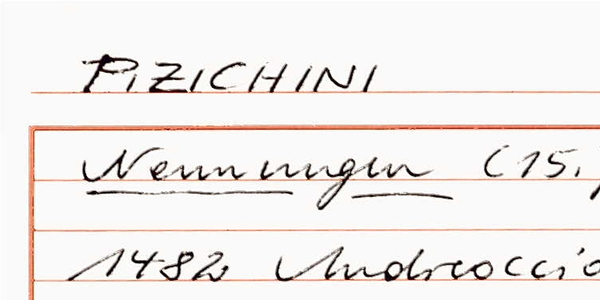 PIZICHINI
Nennungen (15.
1482 Andreoccio